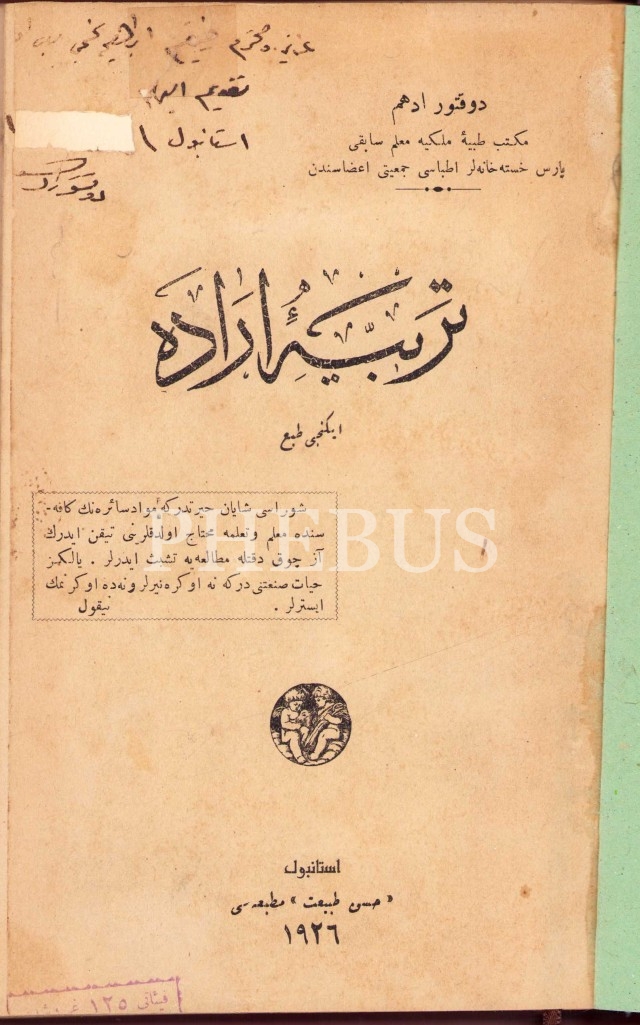 عزیز و محترم
تقدیم
استانبول
دوقتور ادهم
مكتب طبیهٔ ملكیه معلم سابقی
پارس خسته‌خانه‌لر اطباسی جمعیتی اعضاسندن
تَربیهٔ اِرَادَه
ایكنجی طبع
شوراسی شایان حیرتدركه مواد سائره‌نك كافه-
سنده معلم وتعلمه محتاج اولدقلرینی تیقن ایدرك
آز چوق دقتله مطالعه‌یه تشبث ایدرلر . یالكیز
حیات صنعتنی دركه نه اوكره‌نیرلر ونه‌ده اوكرنمك
ایسترلر . نیقول
PHEBUS
استانبول
« حسن طبیعت » مطبعه‌سی
١٩٢٦
فیئاتی ١٢٥ غروشدر